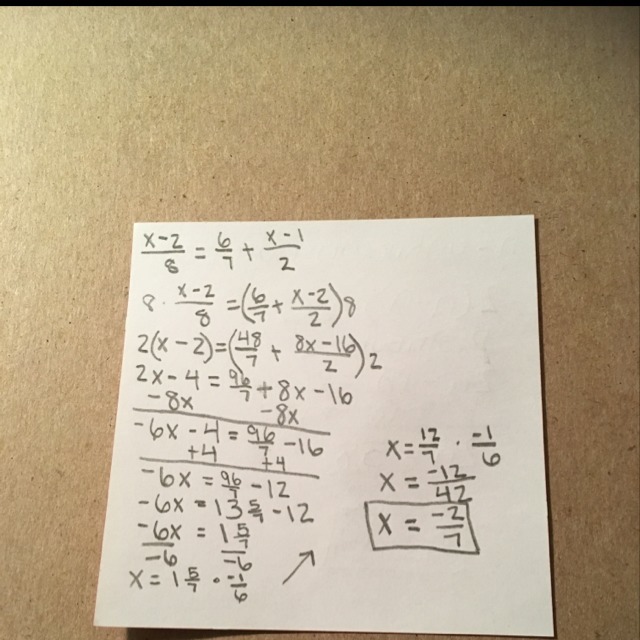 x-2/8 = 6/7 + x-1/2
8 · x-2/8 = (6/7 + x-2/2)8
2(x-2) = (48/7 + 8x-16/2)2
2x-4 = 96/7 + 8x-16
-8x -8x
-6x-4 = 96/7 - 16
+4 +4
-6x = 96/7 - 12
-6x = 13 5/7 - 12
-6x/-6 = 1 5/7/-6
x = 1 5/7 · -1/6
x = 12/7 · -1/6
x = -12/42
x = -2/7